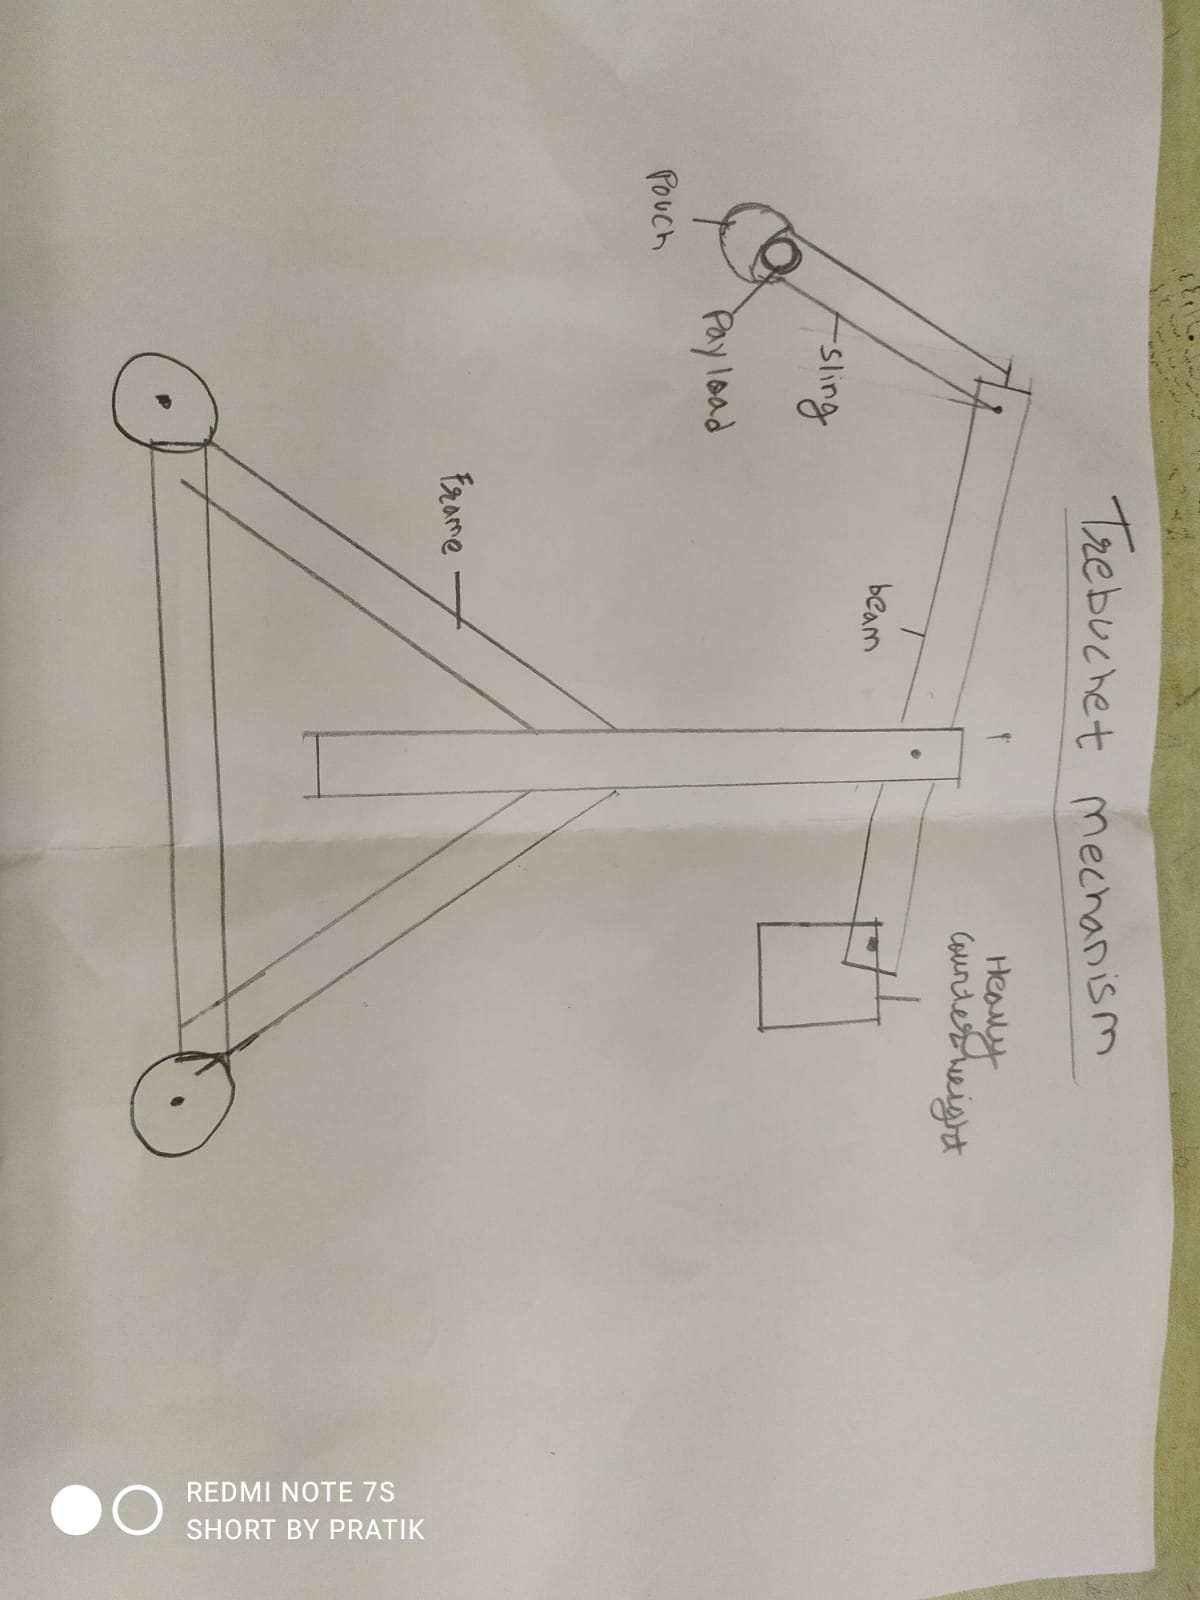 Trebuchet mechanism
Heavy
counterweight
beam
sling
Payload
Pouch
Frame
REDMI NOTE 7S
SHORT BY PRATIK